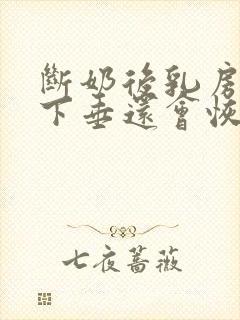 斷奶後乳房
下垂還會恢
七夜薔薇